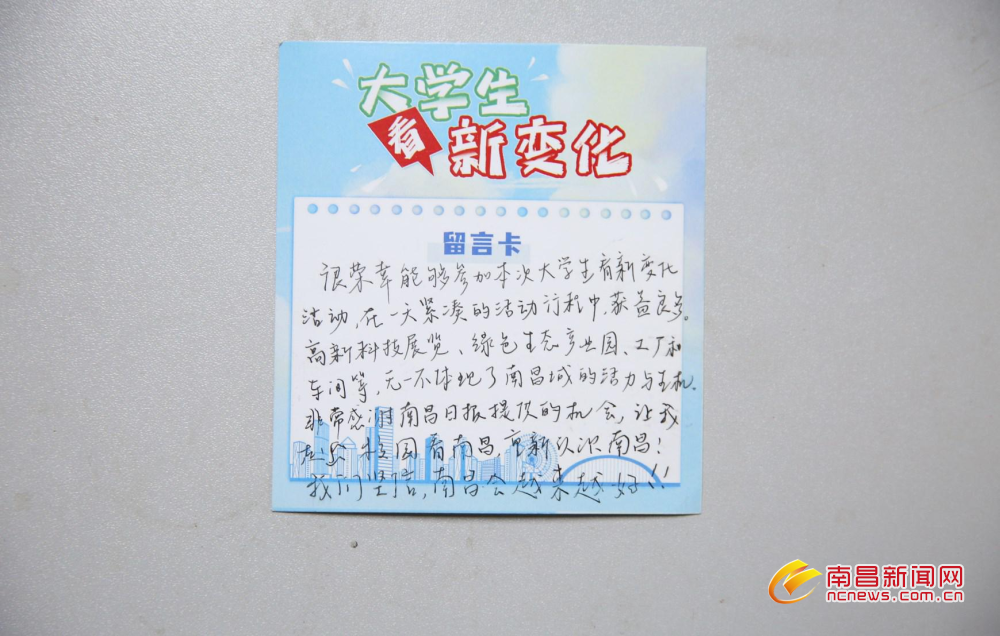 大学生
看新变化
留言卡
很荣幸能够参加本次大学生看新变化
活动,在一天紧凑的活动行程中,获益良多。
高新科技展览、绿色生态产业园、工厂和
车间等,无一不体现了南昌城的活力与生机.
非常感谢南昌日报提供的机会,让我
校园看南昌,重新认识南昌!
我们坚信,南昌会越来越好!!
南昌新闻网
ncnews.com.cn